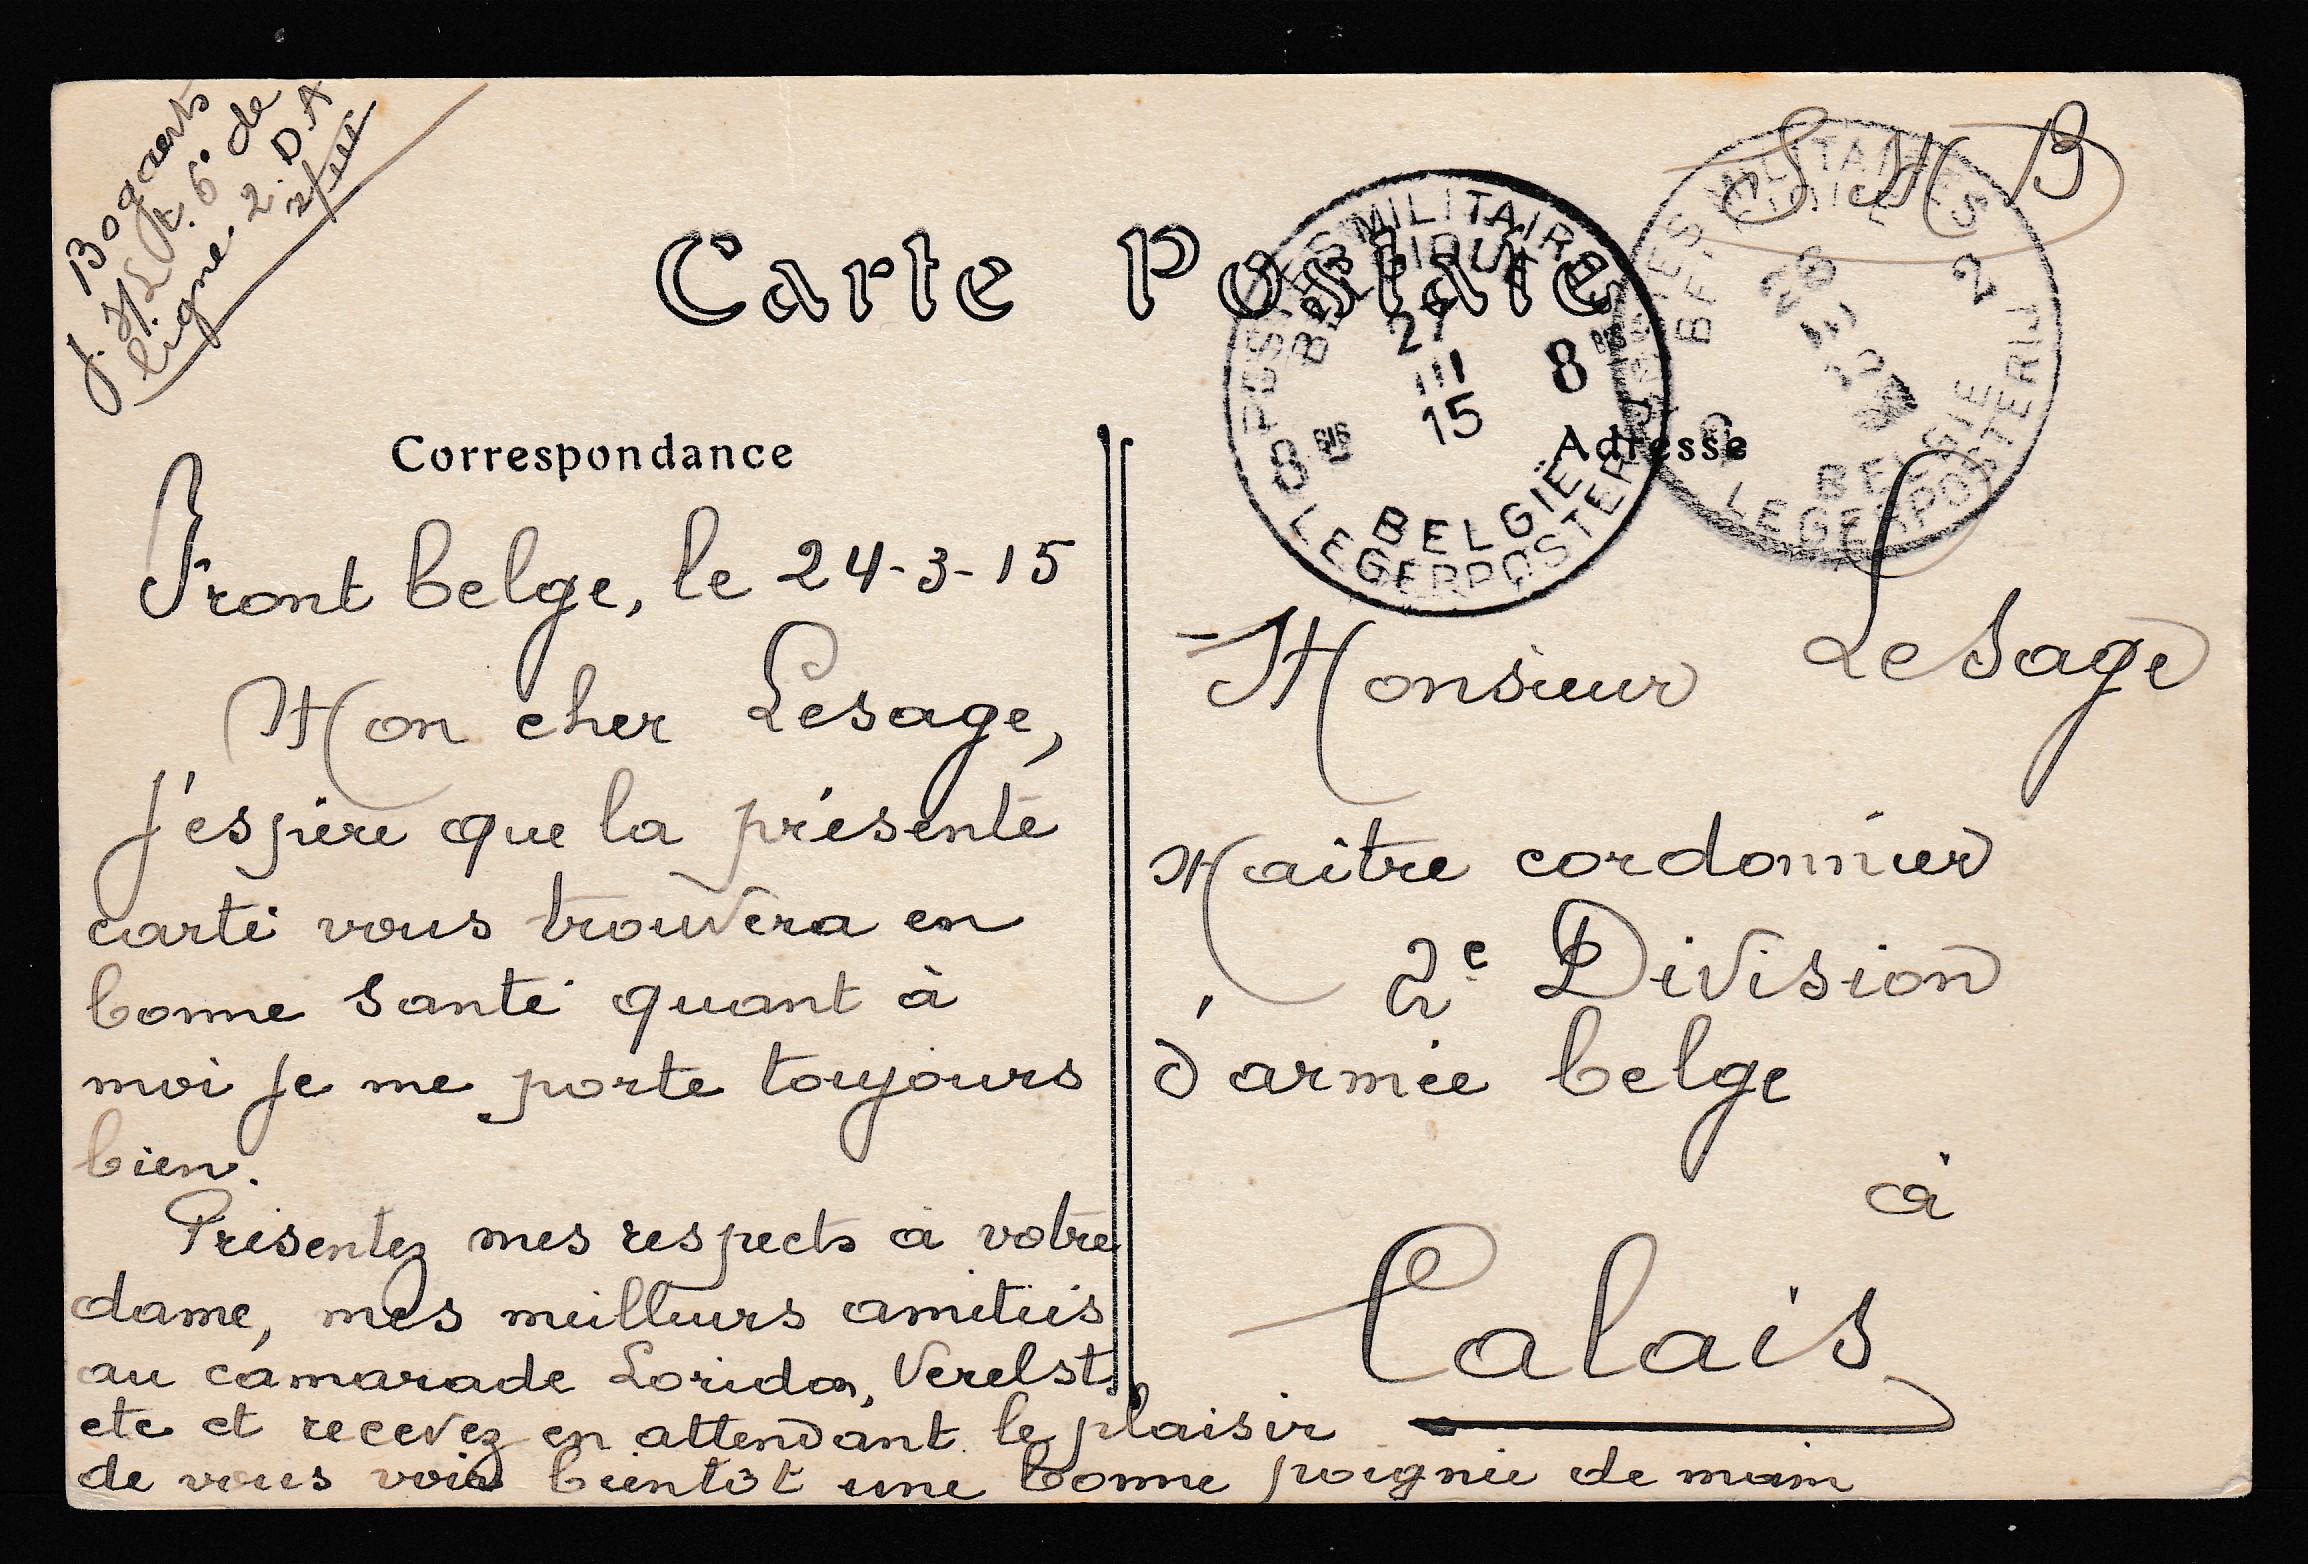 J. Bogaerts
6e de
ligne. 2. D.A
Carte Postale
S M B
POSTES MILITAIRES
BELGIQUE
27
III
15
8 BIS
8 BIS
BELGIË
LEGERPOSTERIJ
POSTES MILITAIRES
BELGIQUE
26
III
15
2
2
BELGIE
LEGERPOSTERIJ
Correspondance
Front belge, le 24-3-15
Mon cher Lesage,
J'espère que la présente
carte vous trouvera en
bonne santé quant à
moi je me porte toujours
bien.
Présentez mes respects à votre
dame, mes meilleurs amitiés
au camarade Loridon, Verelst,
etc et recevez en attendant le plaisir
de vous voir bientôt une bonne poignée de main
Adresse
Monsieur Lesage
Maître cordonnier
2e Division
d'armée belge
à
Calais